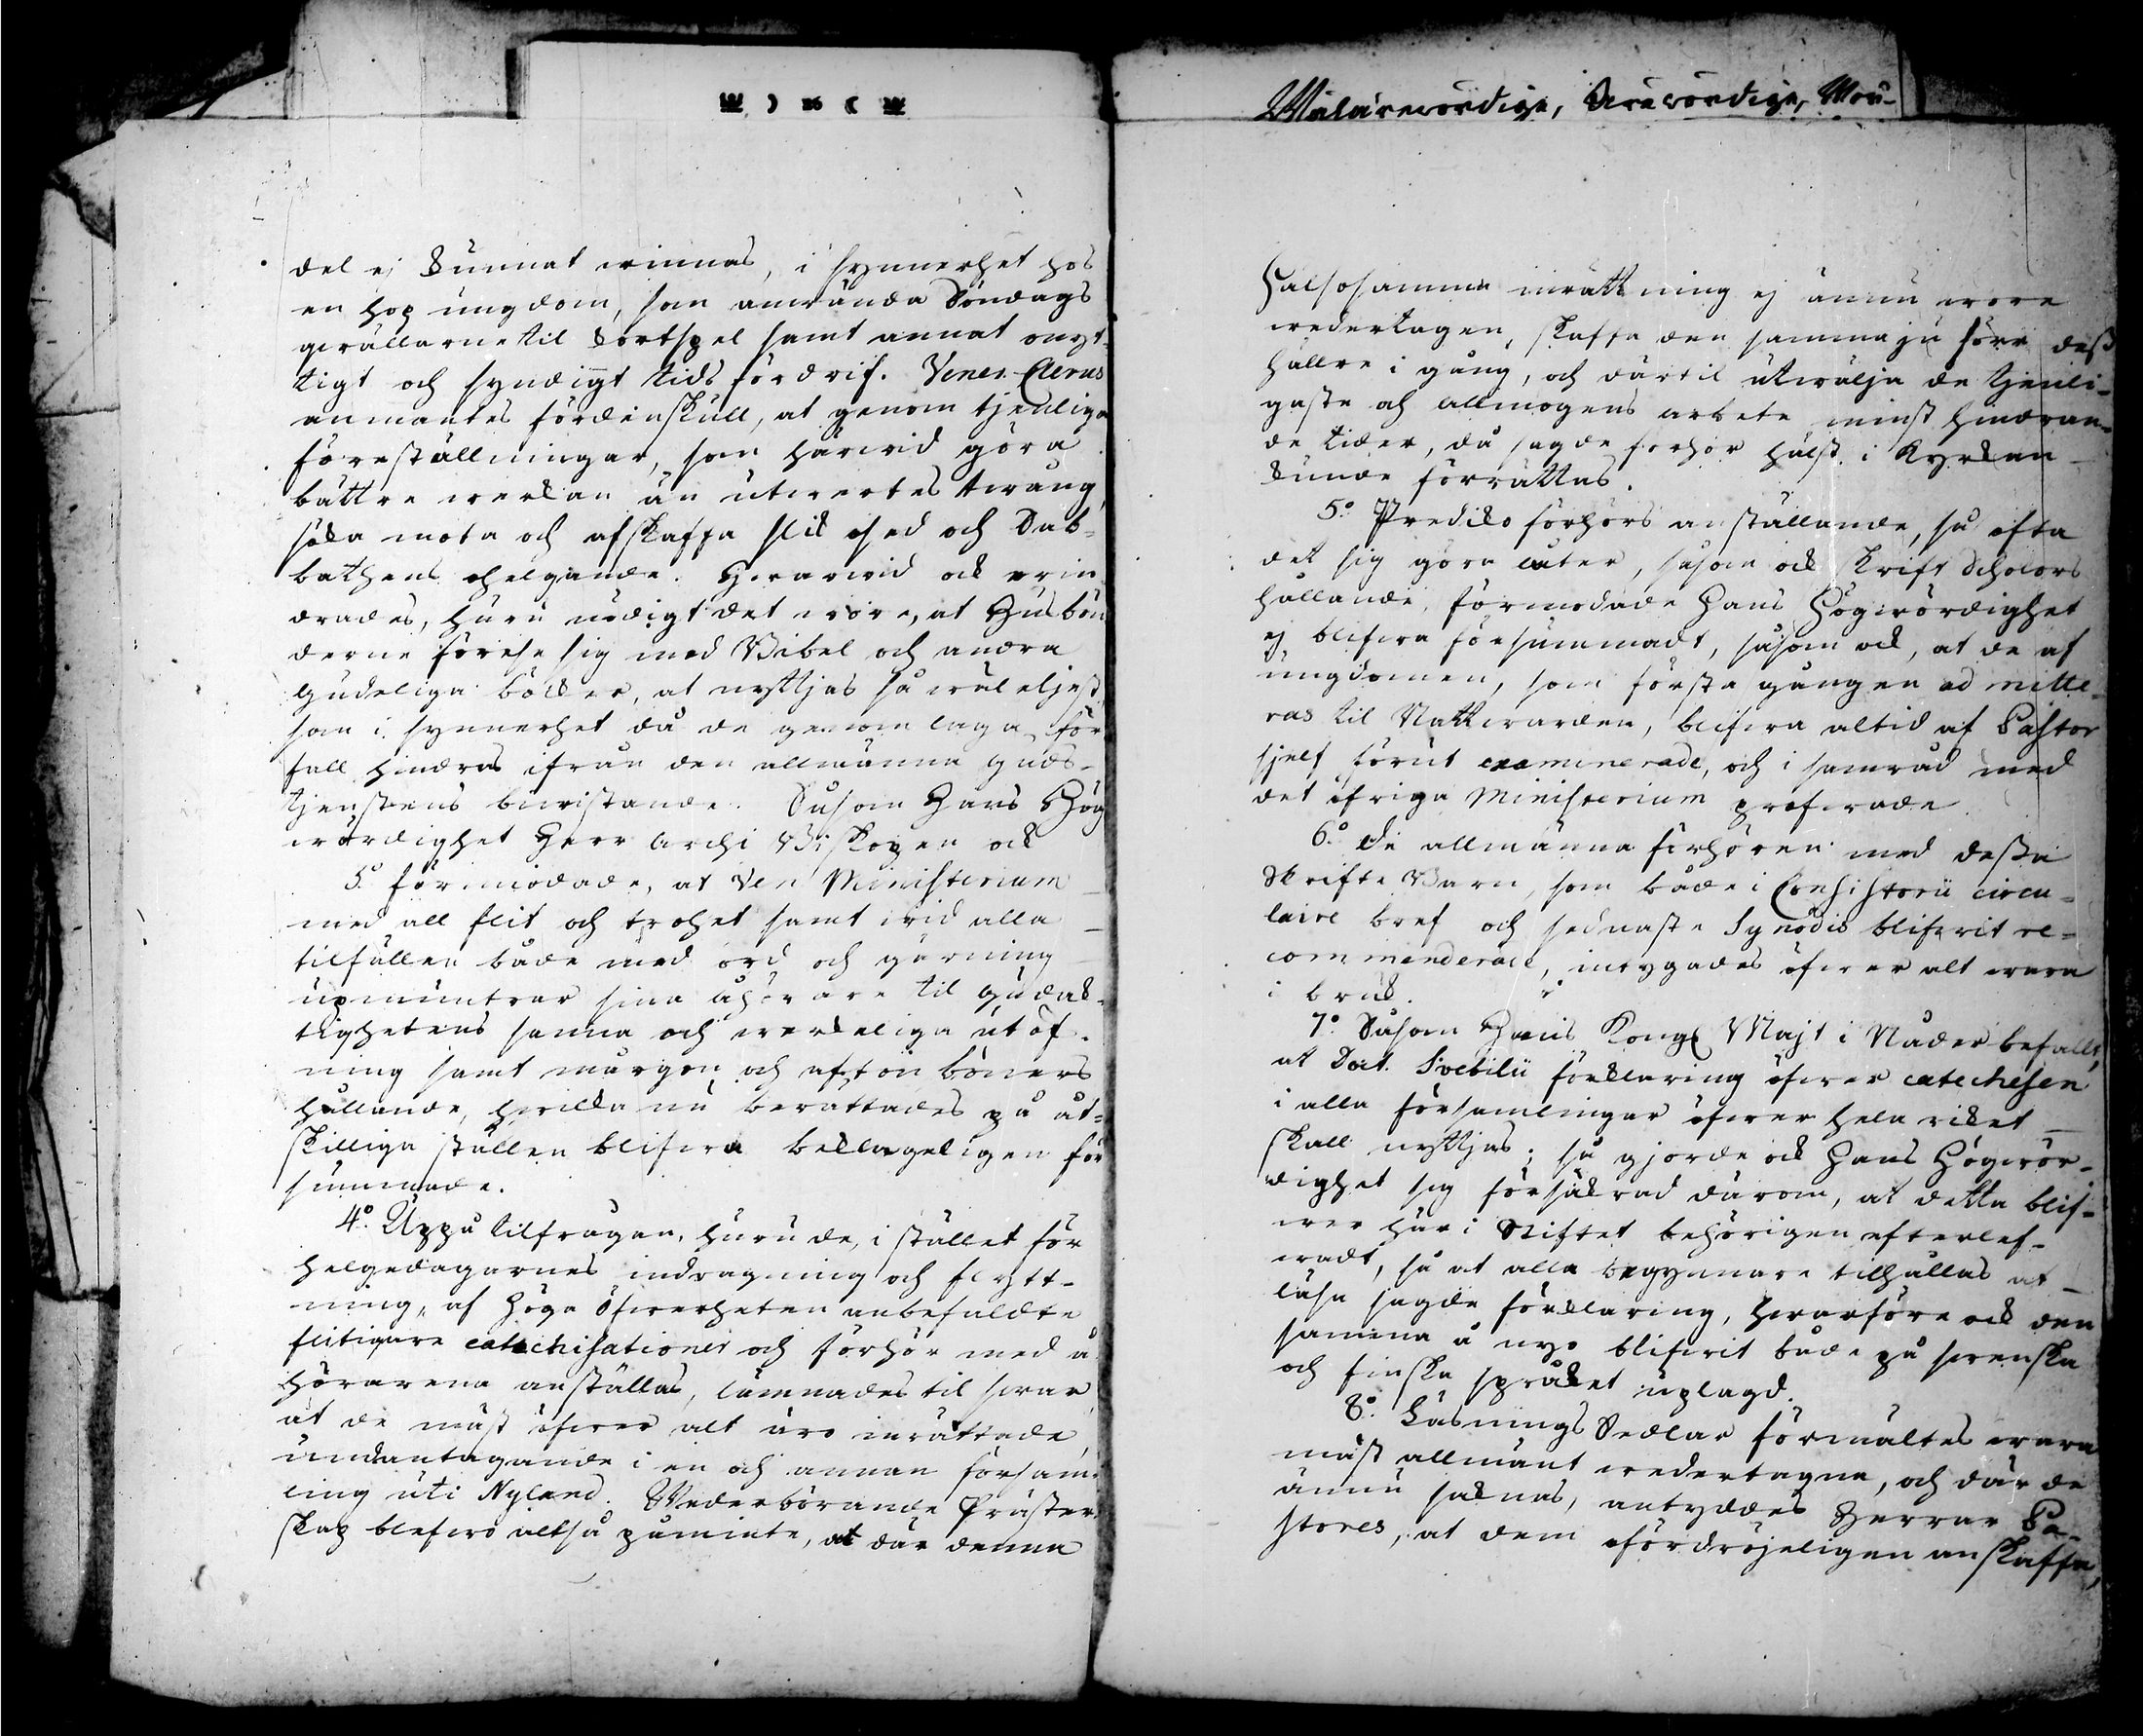 ) 26 (
del ej kunnat winnas, i synnerhet hos
en hop ungdom, som använda Söndags
qwällarne til kortspel samt annat onyt-
tigt och syndigt tids fördrif. Vener. Clerus
anmantes fördenskull, at genom tjenliga
föreställningar, som härwid göra
bättre werkan än utwertes twång,
söka mota och afskaffa slik osed och Sab-
bathens ohelgande. Hwarwid ock erin-
drades, huru nödigt det wore, at Husbön
derne förese sig med Bibel och andra
gudeliga böcker, at nyttjas så wäl eljest
som i synnerhet då de genom laga för
fall hindras ifrån den allmänna Guds-
tjenstens biwistande. Såsom Hans Hög
wördighet Herr Archi Biskopen ock
3.o förmodade, at Ven Ministerium
med all flit och trohet samt wid alla
tilfällen både med ord och gärning
upmuntrar sina åhörare til Gudak-
tighetens sanna och werkeliga utöf-
ning samt morgon och afton böners
hållande, hwilka nu berättades på åt-
skilliga ställen blifwa beklageligen för
summade.
4.o Uppå tilfrågan, huru de, i stället för
helgedagarnes indragning och flytt-
ning, af höga Öfwerheten anbefaldte
flitigare catechisationer och förhör med å
hörarena anställas, lämnades til swar
at de mäst öfwer alt äro inrättade,
undantagande i en och annan försam-
ling uti Nyland. Wederbörande Präster
skap blefwo altså påminte, at där denna
Wälärewördige, Ärewördige,
hälsosamma inrättning ej ännu wore
wedertagen, skaffa den samma ju förr dess
hällre i gång, och därtil utwälja de tjenli-
gaste och allmogens arbete minst hindran-
de tider, då sagde förhör hälst i Kyrkan
kunde förrättas.
5.o Prediko förhörs anställande, så ofta
det sig göra låter, såsom ock Skrift Scholors
hållande, förmodade Hans Högwördighet
ej blifwa försummadt, såsom ock, at de af
ungdomen, som första gången admitte-
ras til Nattwarden, blifwa altid af Pastor
sjelf förut examinerade, och i samråd med
det öfriga Ministerium profwade.
6.o De allmänna förhören med dessa
Skrifte Barn, som både i Consistorii circu-
laire bref och sednaste Synodis blifwit re-
commenderade, intygades öfwer alt wara
i bruk.
7.o Såsom Hans Kongl Majt i Nåder befallt,
at Doct. Svebilii förklaring öfwer catechesen
i alla församlingar öfwer hela riket
skall nyttjas; så gjorde ock Hans Högwör-
dighet sig försäkrad därom, at detta blif-
wer här i Stiftet behörigen efterlef-
wadt, så at alla begynnare tilhållas at
läsa sagde förklaring, hwarföre ock den
samma å nyo blifwit både på swenska
och finska språket uplagd.
8.o Läsnings Sedlar förmältes wara
mäst allmänt wedertagne, och där de
ännu saknas, antyddes Herrar Pa-
stores, at dem ofördröjeligen anskaffa,